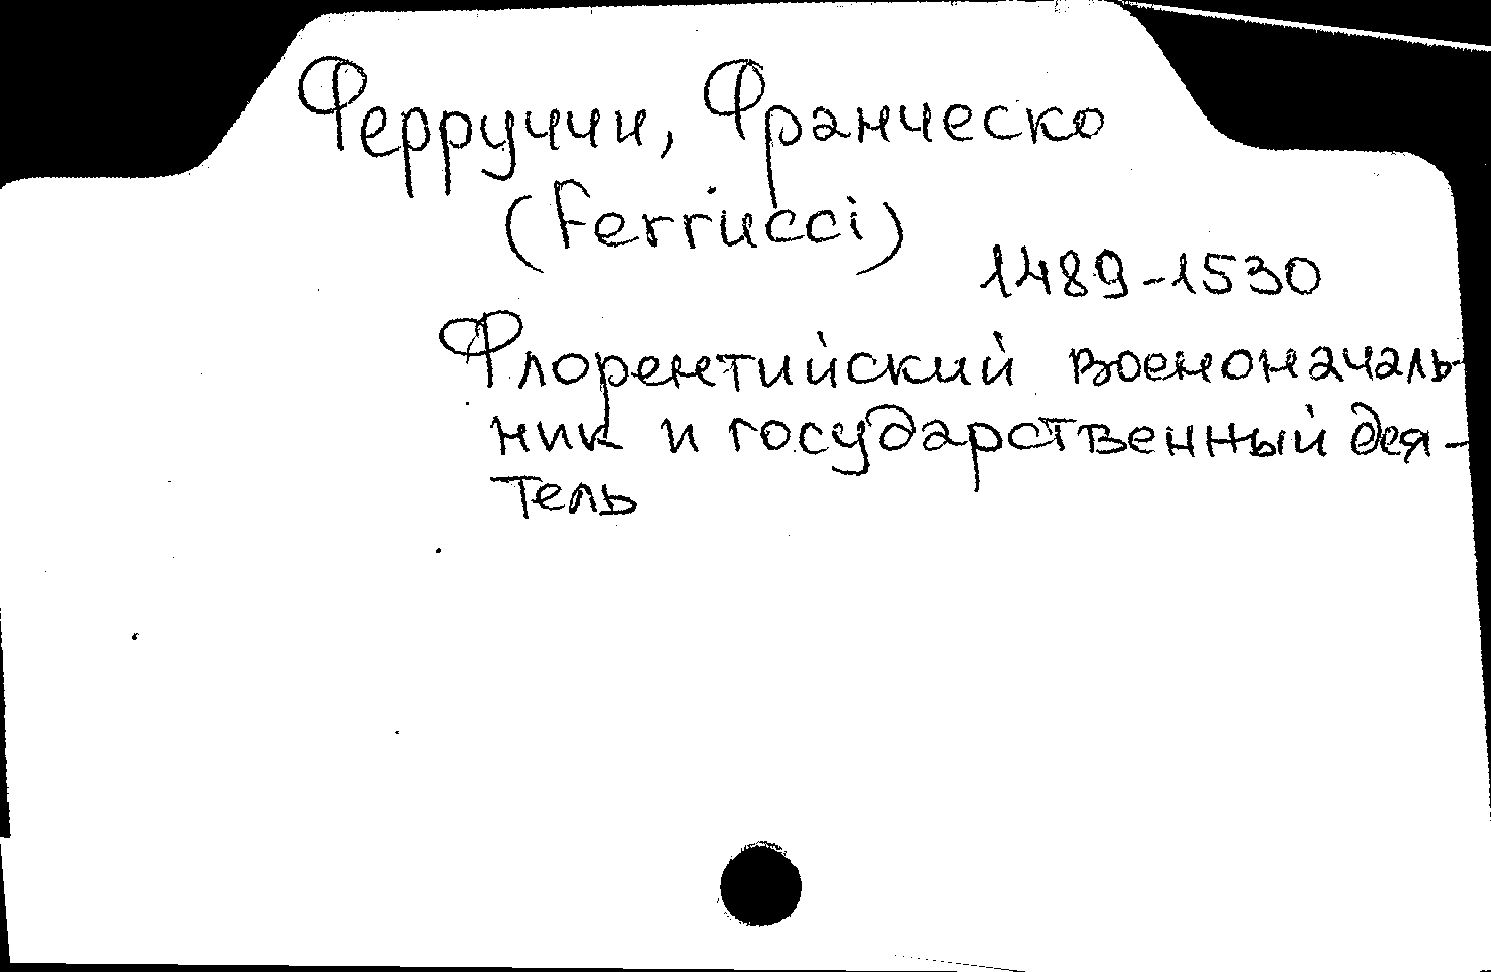 Ферруччи, Франческо
(Ferrucci)
1489-1530
Флорентийский военоначаль-
ник и государственный дея-
тель